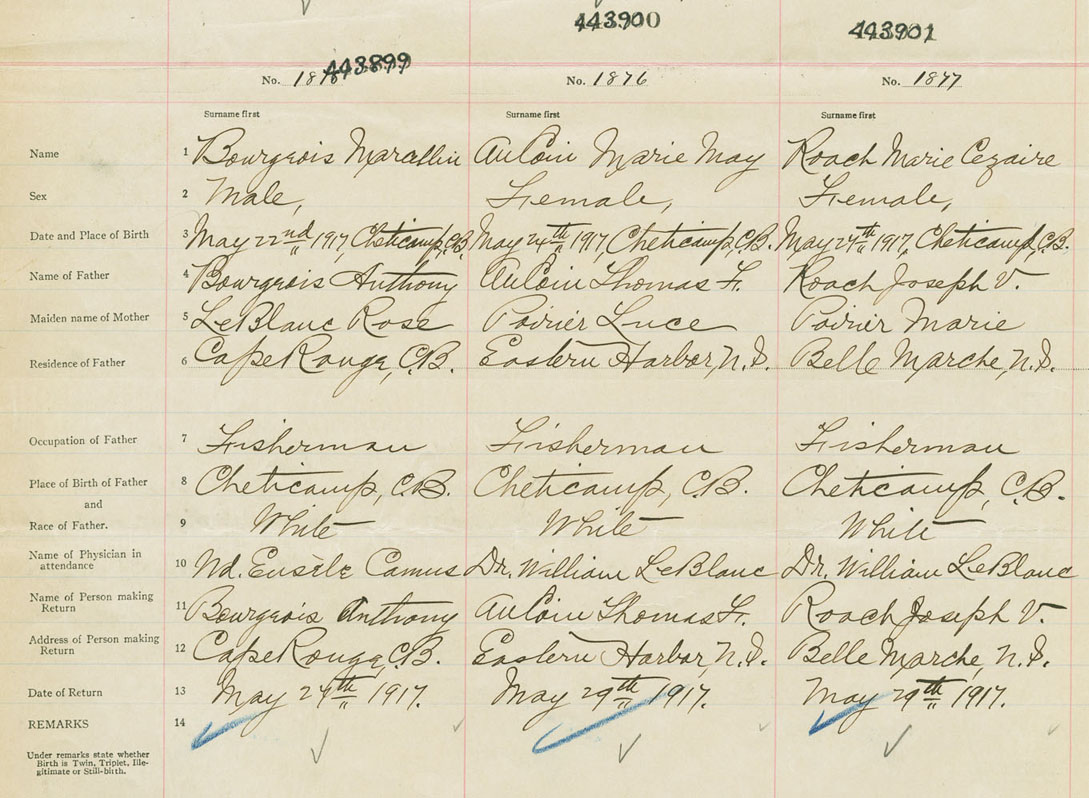 443900
443901
443899
No. 1876
No. 1877
Surname first Surname first Surname first
Name 1 Bourgeois Marcellin AuCoin Marie May Roach Marie Cezaire
Sex 2 Male, Female, Female,
Date and Place of Birth 3 May 22nd 1917 Cheticamp, C.B. May 24th 1917, Cheticamp, C.B. May 27th 1917, Cheticamp, C.B.
Name of Father 4 Bourgeois Anthony AuCoin Thomas F. Roach Joseph V.
Maiden name of Mother 5 LeBlanc Rose Poirier Luce Poirier Marie
Residence of Father 6 Cape Rouge, C.B. Eastern Harbor, N.S. Belle Marche, N.S.
Occupation of Father 7 Fisherman Fisherman Fisherman
Place of Birth of Father 8 Cheticamp, C.B. Cheticamp, C.B. Cheticamp, C.B.
and
Race of Father. 9 White White White
Name of Physician in
attendance 10 Camus Dr. William LeBlanc Dr. William LeBlanc
Name of Person making
Return 11 Bourgeois Anthony AuCoin Thomas F. Roach Joseph V.
Address of Person making
Return 12 Cape Rouge, C.B. Eastern Harbor, N.S. Belle Marche, N.S.
Date of Return 13 May 1917. May 29th 1917. May 29th 1917.
REMARKS 14
Under remarks state whether
Birth is Twin, Triplet, Ille-
gitimate or Still-birth.